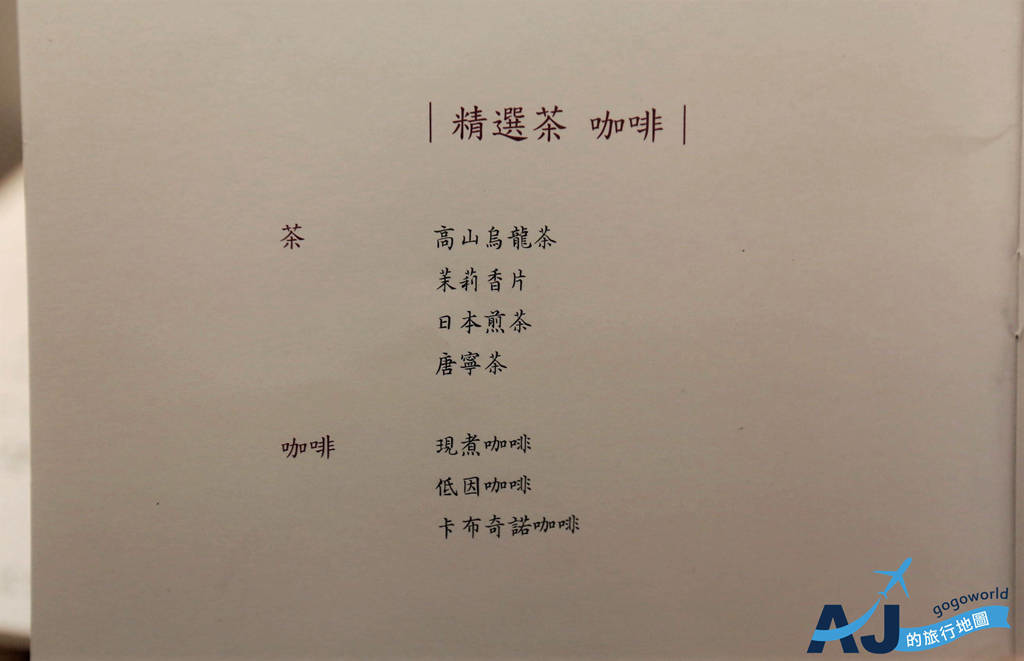 ｜精選茶 咖啡｜
茶 高山烏龍茶
茉莉香片
日本煎茶
唐寧茶
咖啡 現煮咖啡
低因咖啡
卡布奇諾咖啡
gogoworld
AJ的旅行地圖